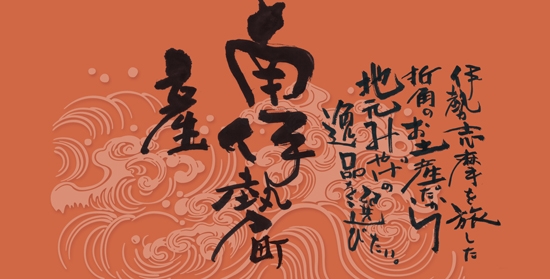 伊勢志摩を旅した
折角のお土産だから
地元みやげの
逸品を選びたい。
南伊勢町
産